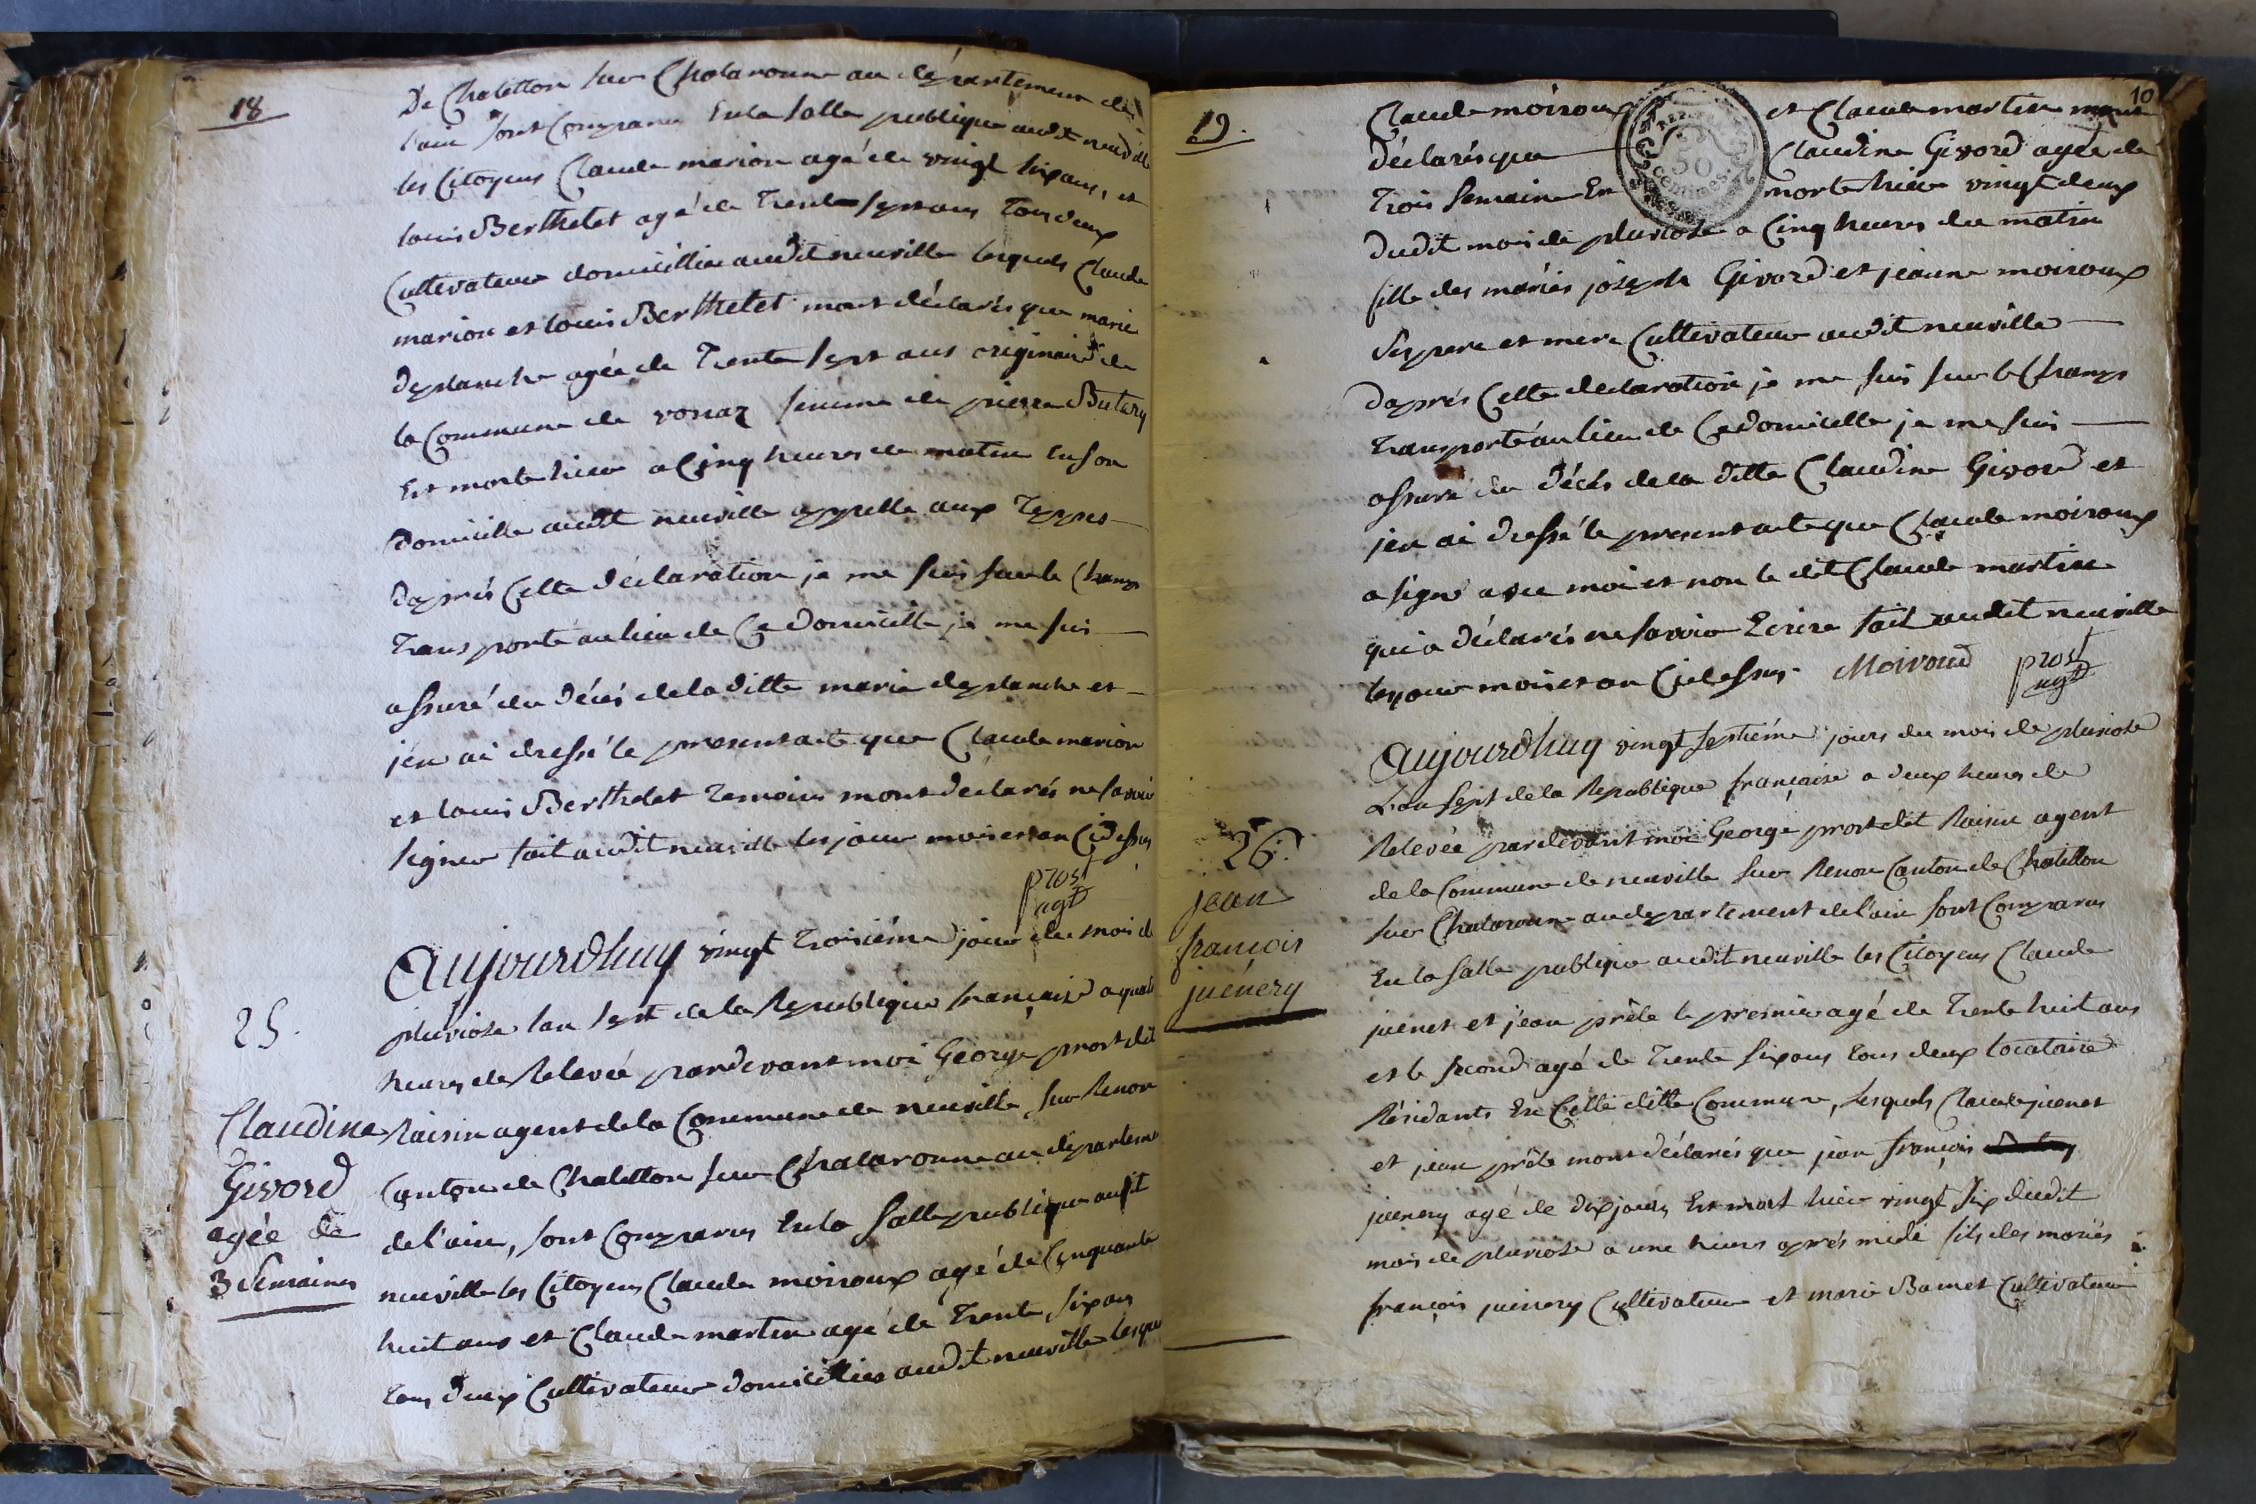 18
De Chatetton sur Chalaronne au département de
l'ain sont Comparus En la salle publique audit neuville
les Citoyens Claude marion agé de vingt six ans, et
louis Berthelet agé de Trente sept ans Tous deux
Cultivateur domicillié audit neuville lesquels Claude
marion et louis Berthelet mont déclarés que marie
deplanche agée de Trente sept ans originaire de
la Commune de vonaz femme de pierre Butery
Est morte hier a Cinq heures du matin En son
Domicille audit neuville appellé aux Teppes
Daprés Cette déclaration je me suis sur le Champ
Transporté au lieu de Ce Domicille je me suis
assuré du décés de la ditte marie deplanche et
jen ai dressé le present acte que Claude marion
et louis Berthelet Temoins mont déclarés ne savoir
signer fait audit neuville les jour mois et an Cidessus
prost
agt
25.
Claudine
Givord
agée de
3 Semaines
Aujourdhuy vingt Troisiéme jour du mois de
pluviose lan sept de la Republique française a quatre
heures de Relevée pardevant moi George prost dit
Raisin agent de la Commune de neuville sur Renon
Canton de Chatetton sur Chalaronne au département
de l'ain, sont Comparus En la Salle publique audit
neuville les Citoyens Claude moiroux agé de Cinquante
huit ans et Claude martin agé de Trente six ans
Tous deux Cultivateur domicilliés audit neuville lesquels
10
19.
Claude moiroux et Claude martin mont
déclarés que Claudine Givord agée de
Trois semaine Est morte hier vingt deux
dudit mois de pluviose a Cinq heures du matin
fille des mariés joseph Givord et jeanne moiroux
Ses pere et mere Cultivateur audit neuville
daprés Cette déclaration je me suis sur le Champ
Transporté au lieu de Ce domicille je me suis
assuré du décés de la ditte Claudine Givord et
jen ai dressé le present acte que Claude moiroux
a signé avec moi et non le dit Claude martin
qui a déclarés ne savoir Ecrire fait audit neuville
les jour mois et an Cidessus. Moiroud prost
agt
REP. FRA.
50
centimes.
26.
jean
francois
juénery
Aujourdhuy vingt septiéme jours du mois de pluviose
L'an sept de la Republique française a deux heures de
Relevée pardevant moi George prost dit Raisin agent
de la Commune de neuville sur Renon Canton de Chatillon
sur Chalaronne au departement de l'ain sont Comparus
En la salle publique audit neuville les Citoyens Claude
juénet et jean prêle le premier agé de Trente huit ans
et le second agé de Trente six ans tous deux locataire
Résidants En Cette ditte Commune, lesquels Claude juenet
et jean prêle mont déclarés que jean françois
juenery agé de dix jours Est mort hier vingt six dudit
mois de pluviose a une heure aprés midi fils des mariés
françois juenery Cultivateur et marie Bamet Cultivateur